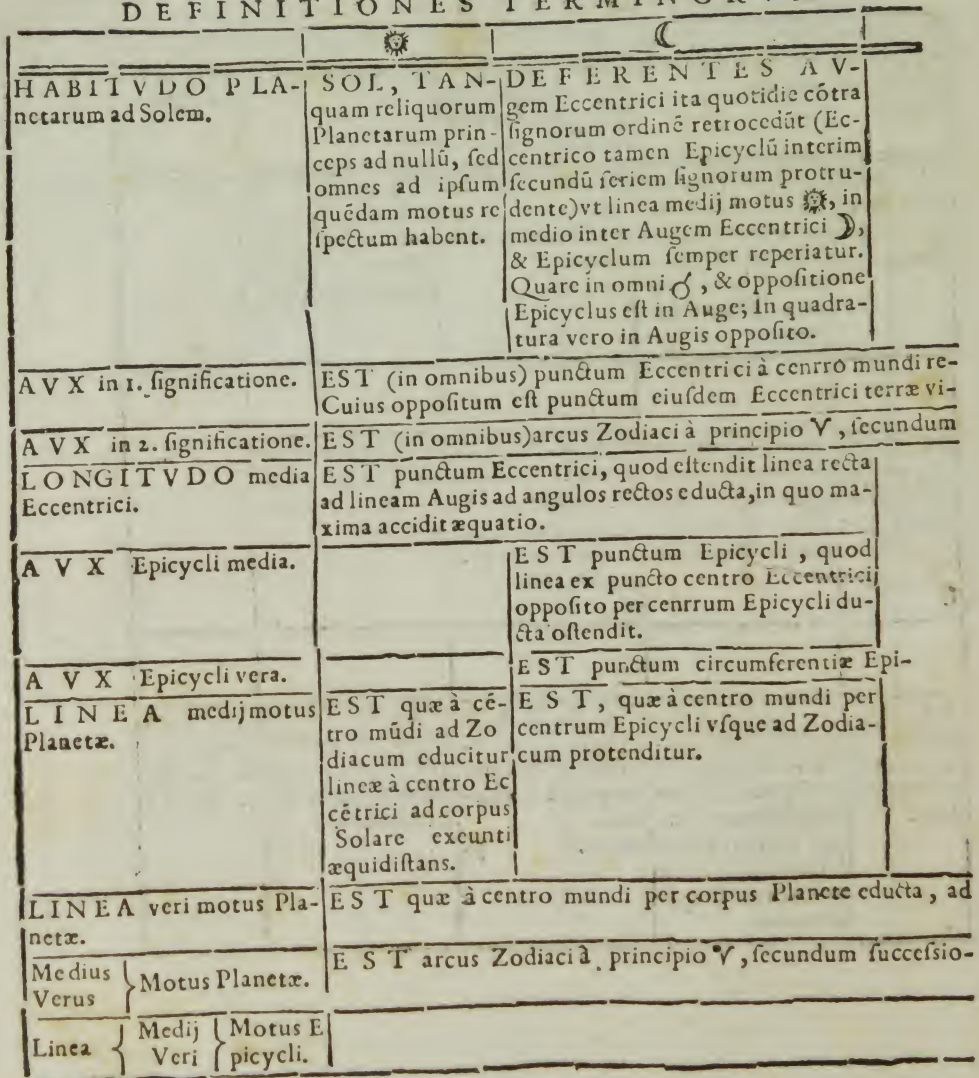 DEFINITIONES TERMINOR
☉ ☾
HABITVDO PLA-
netarum ad Solem.
SOL, TAN-
quam reliquorum
Planetarum prin-
ceps ad nullū, ſed
omnes ad ipſum
quēdam motus re
ſpectum habent.
DEFERENTES AV-
gem Eccentrici ita quotidie cōtra
ſignorum ordinē retrocedūt (Ec-
centrico tamen Epicyclū interim
ſecundū ſeriem ſignorum protru-
dente)vt linea medij motus ☉, in
medio inter Augem Eccentrici ☽,
& Epicyclum ſemper reperiatur.
Quare in omni ☌, & oppoſitione
Epicyclus eſt in Auge; In quadra-
tura vero in Augis oppoſito.
AVX in 1. ſignificatione.
EST (in omnibus) punctum Eccentrici à cenrro mundi re-
Cuius oppoſitum eſt punctum eiuſdem Eccentrici terræ vi-
AVX in 2. ſignificatione.
EST (in omnibus)arcus Zodiaci à principio ♈, ſecundum
LONGITVDO media
Eccentrici.
EST punctum Eccentrici, quod oſtendit linea recta
ad lineam Augis ad angulos rectos educta,in quo ma-
xima accidit æquatio.
AVX Epicycli media.
EST punctum Epicycli, quod
linea ex puncto centro Eccentrici
oppoſito per cenrrum Epicycli du-
cta oſtendit.
AVX Epicycli vera.
EST punctum circumferentiæ Epi-
LINEA medij motus
Planetæ.
EST quæ à cē-
tro mūdi ad Zo
diacum educitur
lineæ à centro Ec
cētrici ad corpus
Solare exeunti
æquidiſtans.
EST, quæ à centro mundi per
centrum Epicycli vſque ad Zodia-
cum protenditur.
LINEA veri motus Pla-
netæ.
EST quæ à centro mundi per corpus Planete educta, ad
Medius
Verus
Motus Planetæ.
EST arcus Zodiaci à principio ♈, ſecundum ſucceſsio-
Linea
Medij
Veri
Motus E
picycli.